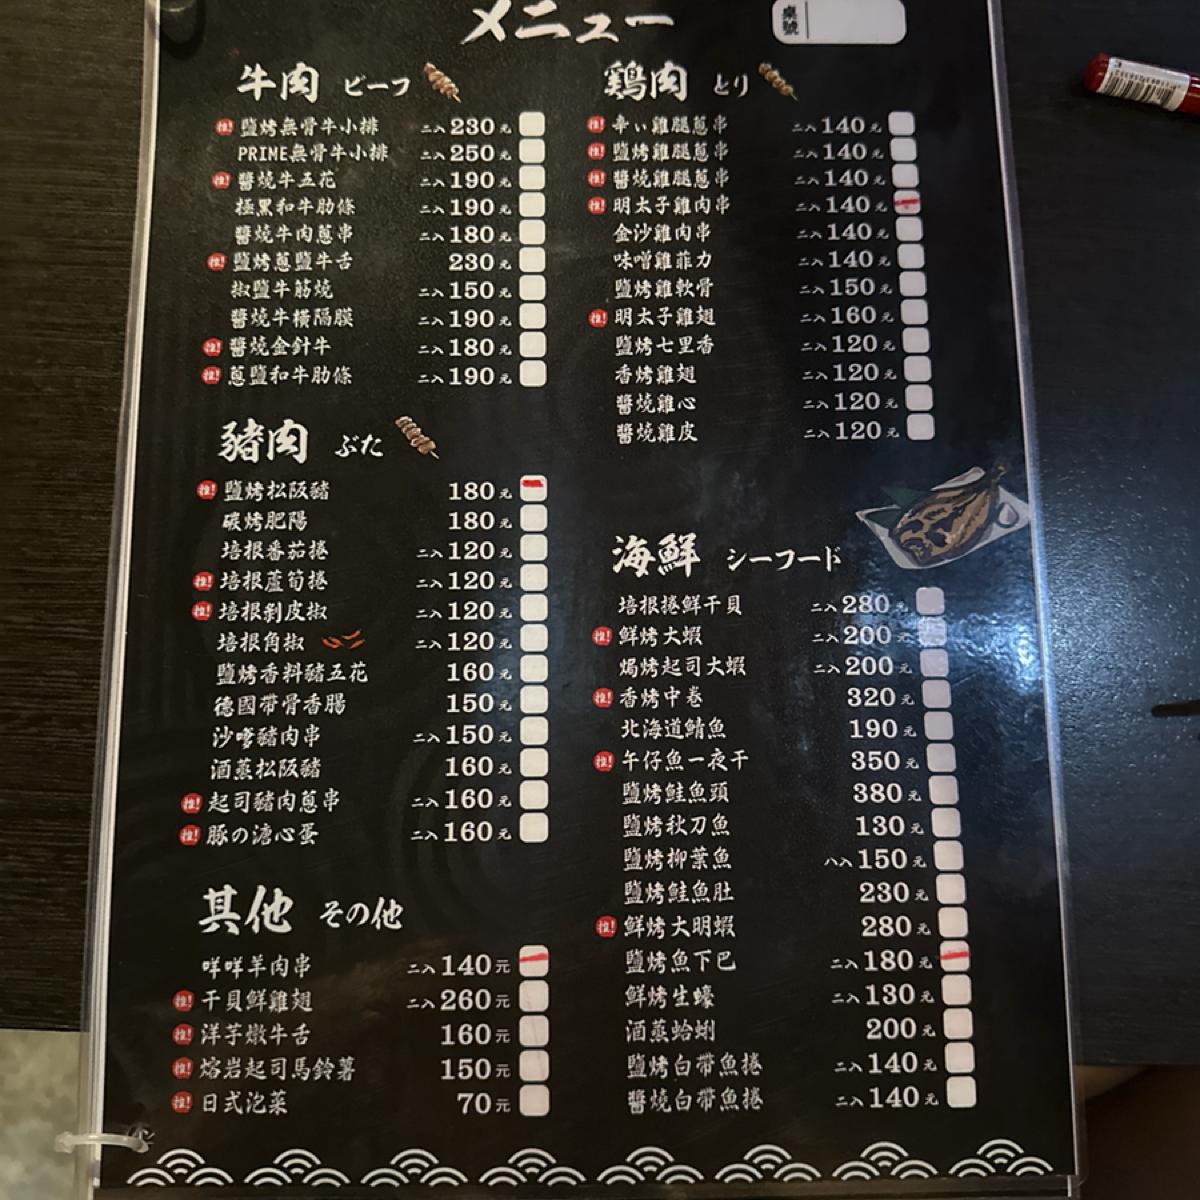 メニュー
桌號
牛肉 ビーフ
推! 鹽烤無骨牛小排 二入 230元
PRIME無骨牛小排 二入 250元
推! 醬燒牛五花 二入 190元
極黑和牛肋條 二入 190元
醬燒牛肉蔥串 二入 180元
推! 鹽烤蔥鹽牛舌 230元
椒鹽牛筋燒 二入 150元
醬燒牛橫隔膜 二入 190元
推! 醬燒金針牛 二入 180元
推! 蔥鹽和牛肋條 二入 190元
豬肉 ぶた
推! 鹽烤松阪豬 180元
碳烤肥腸 180元
培根番茄捲 二入 120元
推! 培根蘆筍捲 二入 120元
推! 培根剝皮椒 二入 120元
培根角椒 二入 120元
鹽烤香料豬五花 160元
德國帶骨香腸 150元
沙嗲豬肉串 二入 150元
酒蒸松阪豬 160元
推! 起司豬肉蔥串 二入 160元
推! 豚の溏心蛋 二入 160元
其他 その他
咩咩羊肉串 二入 140元
推! 干貝鮮雞翅 二入 260元
推! 洋芋燉牛舌 160元
推! 熔岩起司馬鈴薯 150元
推! 日式泡菜 70元
鶏肉 とり
推! 辛い雞腿蔥串 二入 140元
推! 鹽烤雞腿蔥串 二入 140元
推! 醬燒雞腿蔥串 二入 140元
推! 明太子雞肉串 二入 140元
金沙雞肉串 二入 140元
味噌雞菲力 二入 140元
鹽烤雞軟骨 二入 150元
推! 明太子雞翅 二入 160元
鹽烤七里香 二入 120元
香烤雞翅 二入 120元
醬燒雞心 二入 120元
醬燒雞皮 二入 120元
海鮮 シーフード
培根捲鮮干貝 二入 280元
推! 鮮烤大蝦 二入 200元
焗烤起司大蝦 二入 200元
推! 香烤中卷 320元
北海道鯖魚 190元
推! 午仔魚一夜干 350元
鹽烤鮭魚頭 380元
鹽烤秋刀魚 130元
鹽烤柳葉魚 八入 150元
鹽烤鮭魚肚 230元
推! 鮮烤大明蝦 280元
鹽烤魚下巴 二入 180元
鮮烤生蠔 二入 130元
酒蒸蛤蜊 200元
鹽烤白帶魚捲 二入 140元
醬燒白帶魚捲 二入 140元